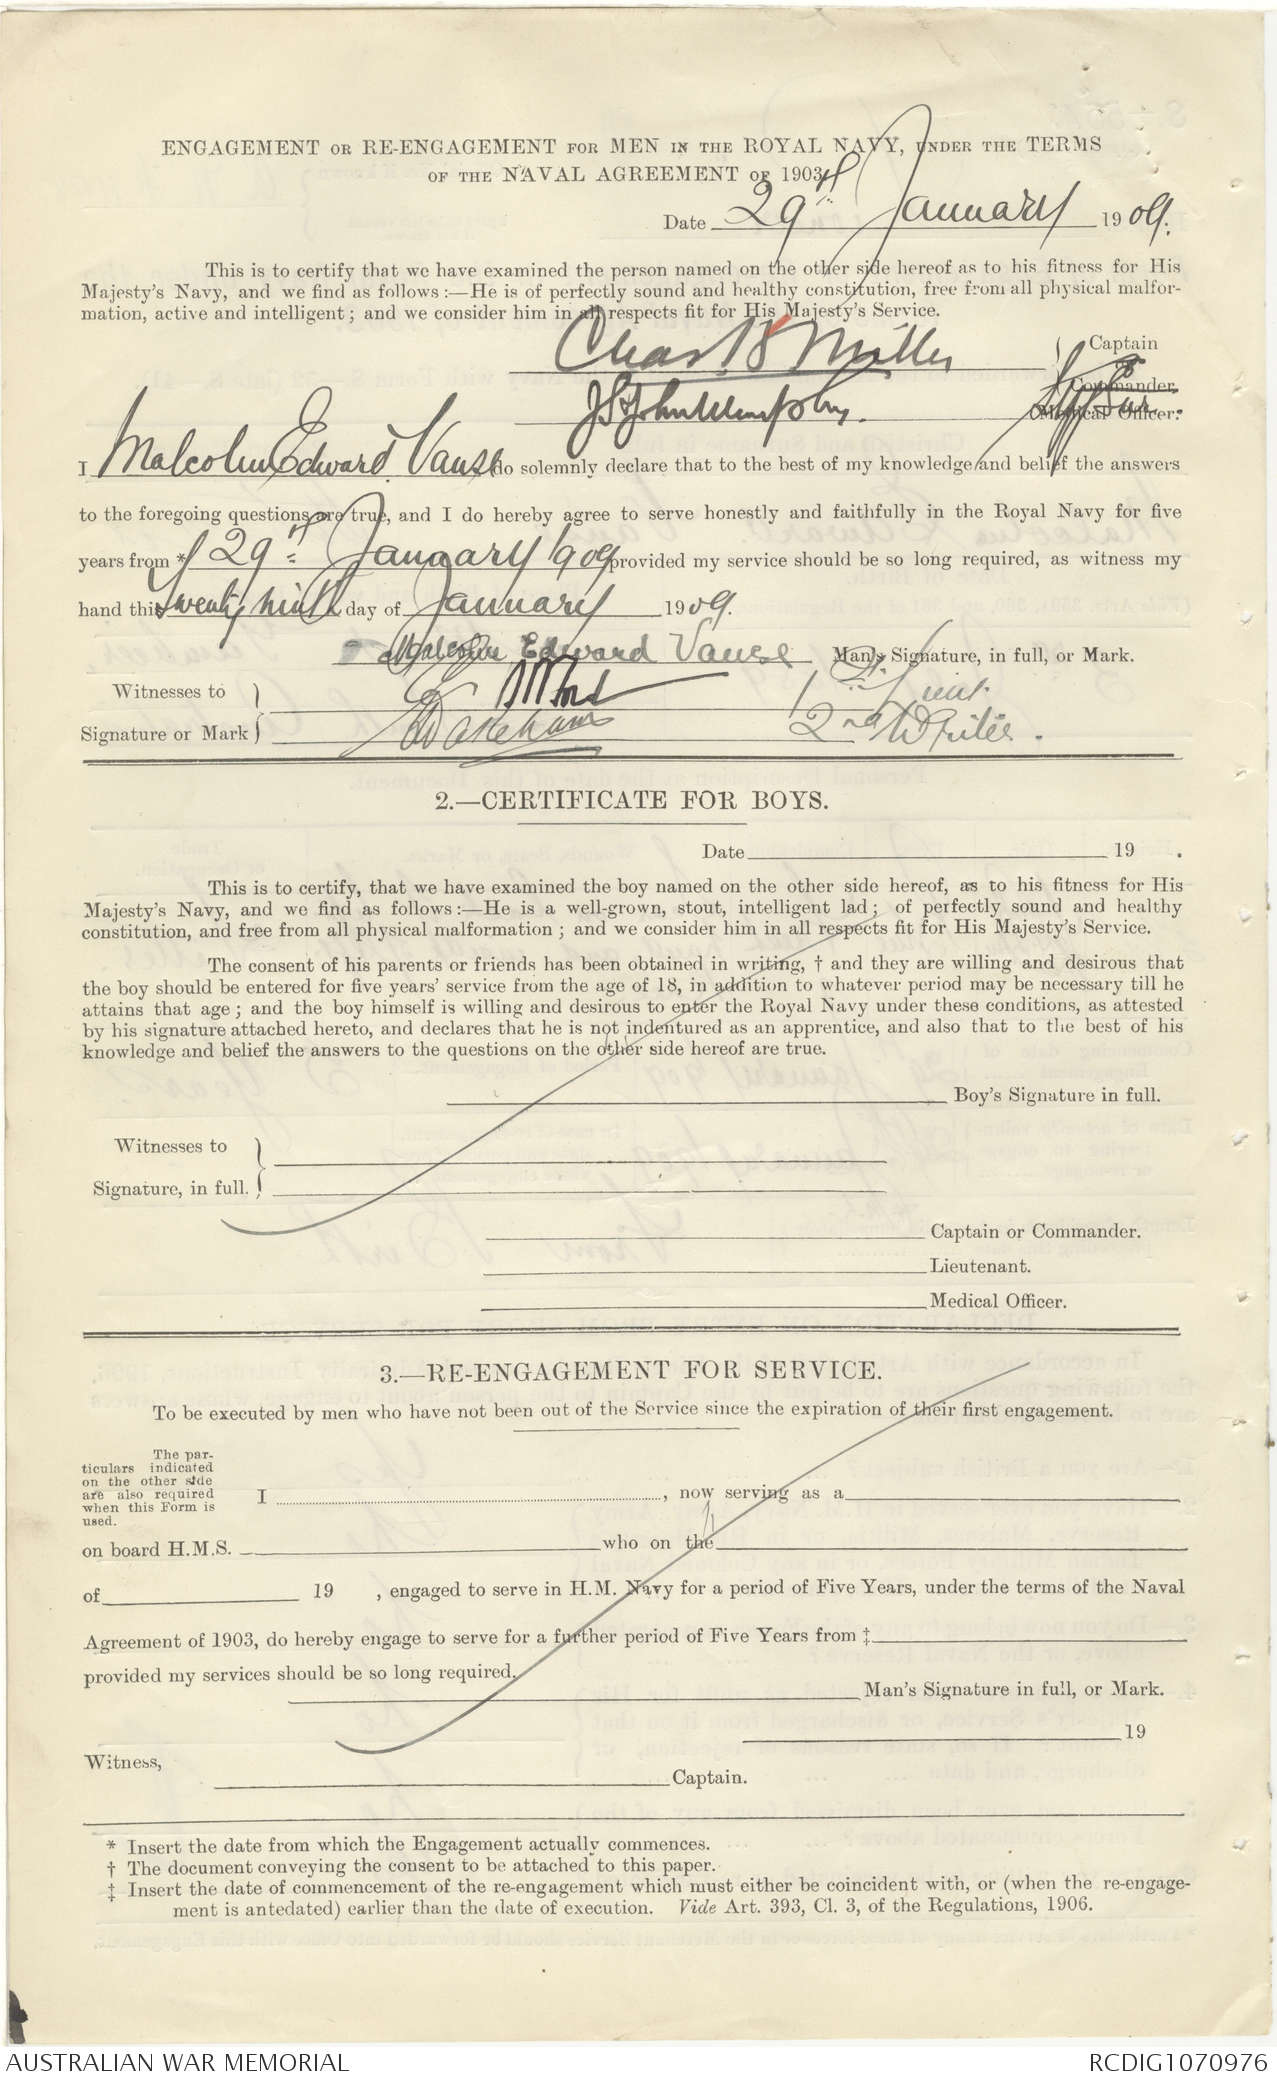 ENGAGEMENT OR RE-ENGAGEMENT FOR MEN IN THE ROYAL NAVY, UNDER THE TERMS
OF THE NAVAL AGREEMENT OF 1903.
Date 29th January 1909.
This is to certify that we have examined the person named on the other side hereof as to his fitness for His
Majesty's Navy, and we find as follows:—He is of perfectly sound and healthy constitution, free from all physical malfor-
mation, active and intelligent; and we consider him in all respects fit for His Majesty's Service.
Chas B Miller
Captain
Commander.
Medical Officer.
I Malcolm Edward Vause do solemnly declare that to the best of my knowledge and belief the answers
to the foregoing questions are true, and I do hereby agree to serve honestly and faithfully in the Royal Navy for five
years from * 29th January 1909 provided my service should be so long required, as witness my
hand this twenty ninth day of January 1909.
Malcolm Edward Vause Man's Signature, in full, or Mark.
Witnesses to
Signature or Mark
Lieut.
2nd Writer.
2.—CERTIFICATE FOR BOYS.
Date 19 .
This is to certify, that we have examined the boy named on the other side hereof, as to his fitness for His
Majesty's Navy, and we find as follows:—He is a well-grown, stout, intelligent lad; of perfectly sound and healthy
constitution, and free from all physical malformation; and we consider him in all respects fit for His Majesty's Service.
The consent of his parents or friends has been obtained in writing, † and they are willing and desirous that
the boy should be entered for five years' service from the age of 18, in addition to whatever period may be necessary till he
attains that age; and the boy himself is willing and desirous to enter the Royal Navy under these conditions, as attested
by his signature attached hereto, and declares that he is not indentured as an apprentice, and also that to the best of his
knowledge and belief the answers to the questions on the other side hereof are true.
Boy's Signature in full.
Witnesses to
Signature, in full.
Captain or Commander.
Lieutenant.
Medical Officer.
3.—RE-ENGAGEMENT FOR SERVICE.
To be executed by men who have not been out of the Service since the expiration of their first engagement.
The par-
ticulars indicated
on the other side
are also required
when this Form is
used.
I , now serving as a
on board H.M.S. who on the
of 19 , engaged to serve in H.M. Navy for a period of Five Years, under the terms of the Naval
Agreement of 1903, do hereby engage to serve for a further period of Five Years from ‡
provided my services should be so long required.
Man's Signature in full, or Mark.
19
Witness,
Captain.
* Insert the date from which the Engagement actually commences.
† The document conveying the consent to be attached to this paper.
‡ Insert the date of commencement of the re-engagement which must either be coincident with, or (when the re-engage-
ment is antedated) earlier than the date of execution. Vide Art. 393, Cl. 3, of the Regulations, 1906.
AUSTRALIAN WAR MEMORIAL
RCDIG1070976